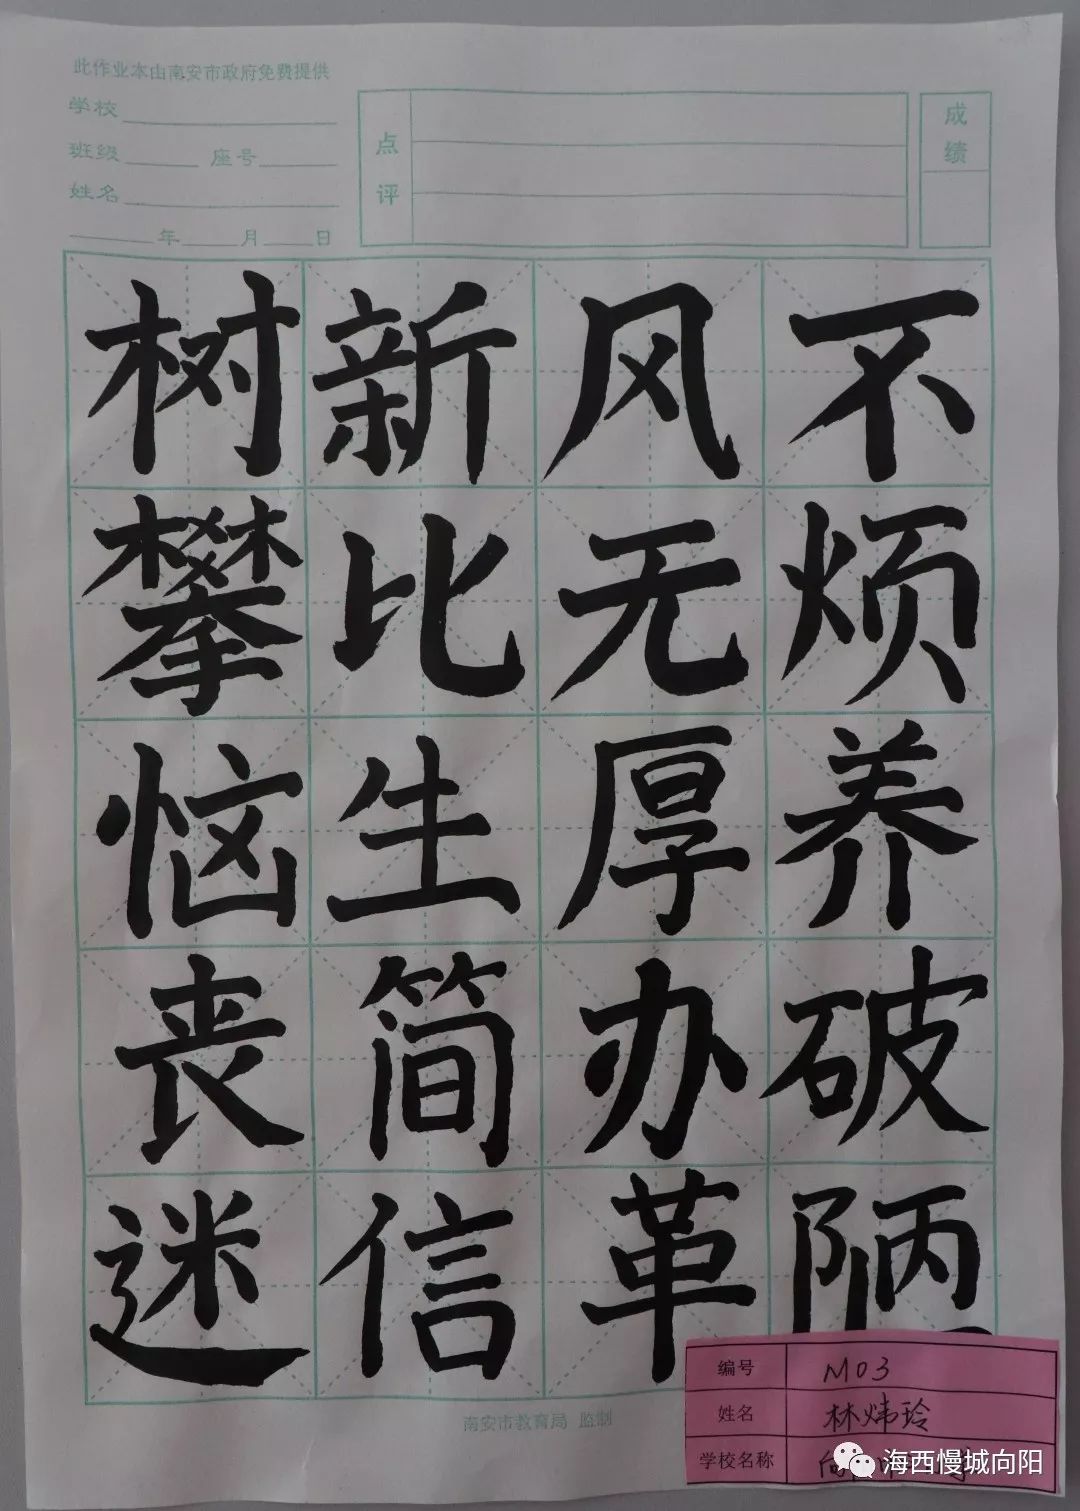 此作业本由南安市政府免费提供
学校
班级 座号
姓名
年 月 日
点评
成绩
树新风不
攀比无烦
恼生厚养
丧简办破
迷信革陋
南安市教育局 监制
编号 M03
姓名 林炜玲
学校名称
海西慢城向阳